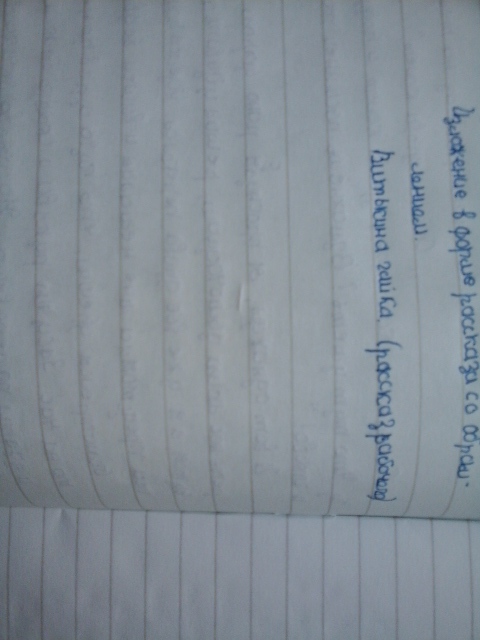 Изложение в форме рассказа со обрам-
лением.
Витькина гайка (рассказ рабочего)